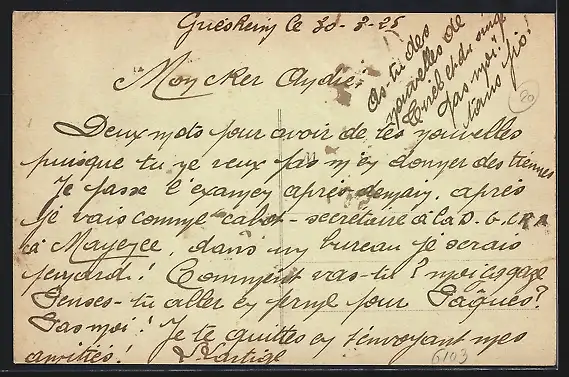 Guesheim le 30-3-25
Mon cher André,
As-tu des
nouvelles de
et du singe
Pas moi!
tans pis!
20
Deux mots pour avoir de tes nouvelles
puisque tu ne veux pas m'en donner des tiennes
Je passe l'examen après-demain, après
je vais comme cabot-secrétaire à la D.G.C.R.A
à Mayence, dans un bureau je serais
peinard! Comment vas-tu? moi ça gaze
Penses-tu aller en perme pour Pâques?
Pas moi! Je te quittes en t'envoyant mes
amitiés!
6103